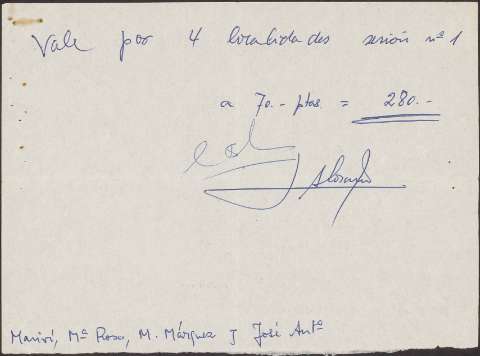 Vale por 4 localidades sesión nº 1
a 70.- ptas. = 280.-
Mariví, Mª Rosa, M. Márquez y José Antº